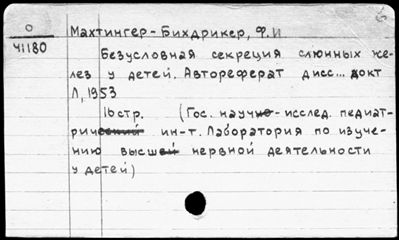 О
Ч1180
Махтингер-Бихдрикер, Ф.И
Безусловная секреция слюнных же-
лез у детей. Автореферат дисс... докт
Л, 1953
16 стр. (Гос. научно-исслед. педиат-
рический ин-т. Лаборатория по изуче-
нию высшей нервной деятельности
у детей)